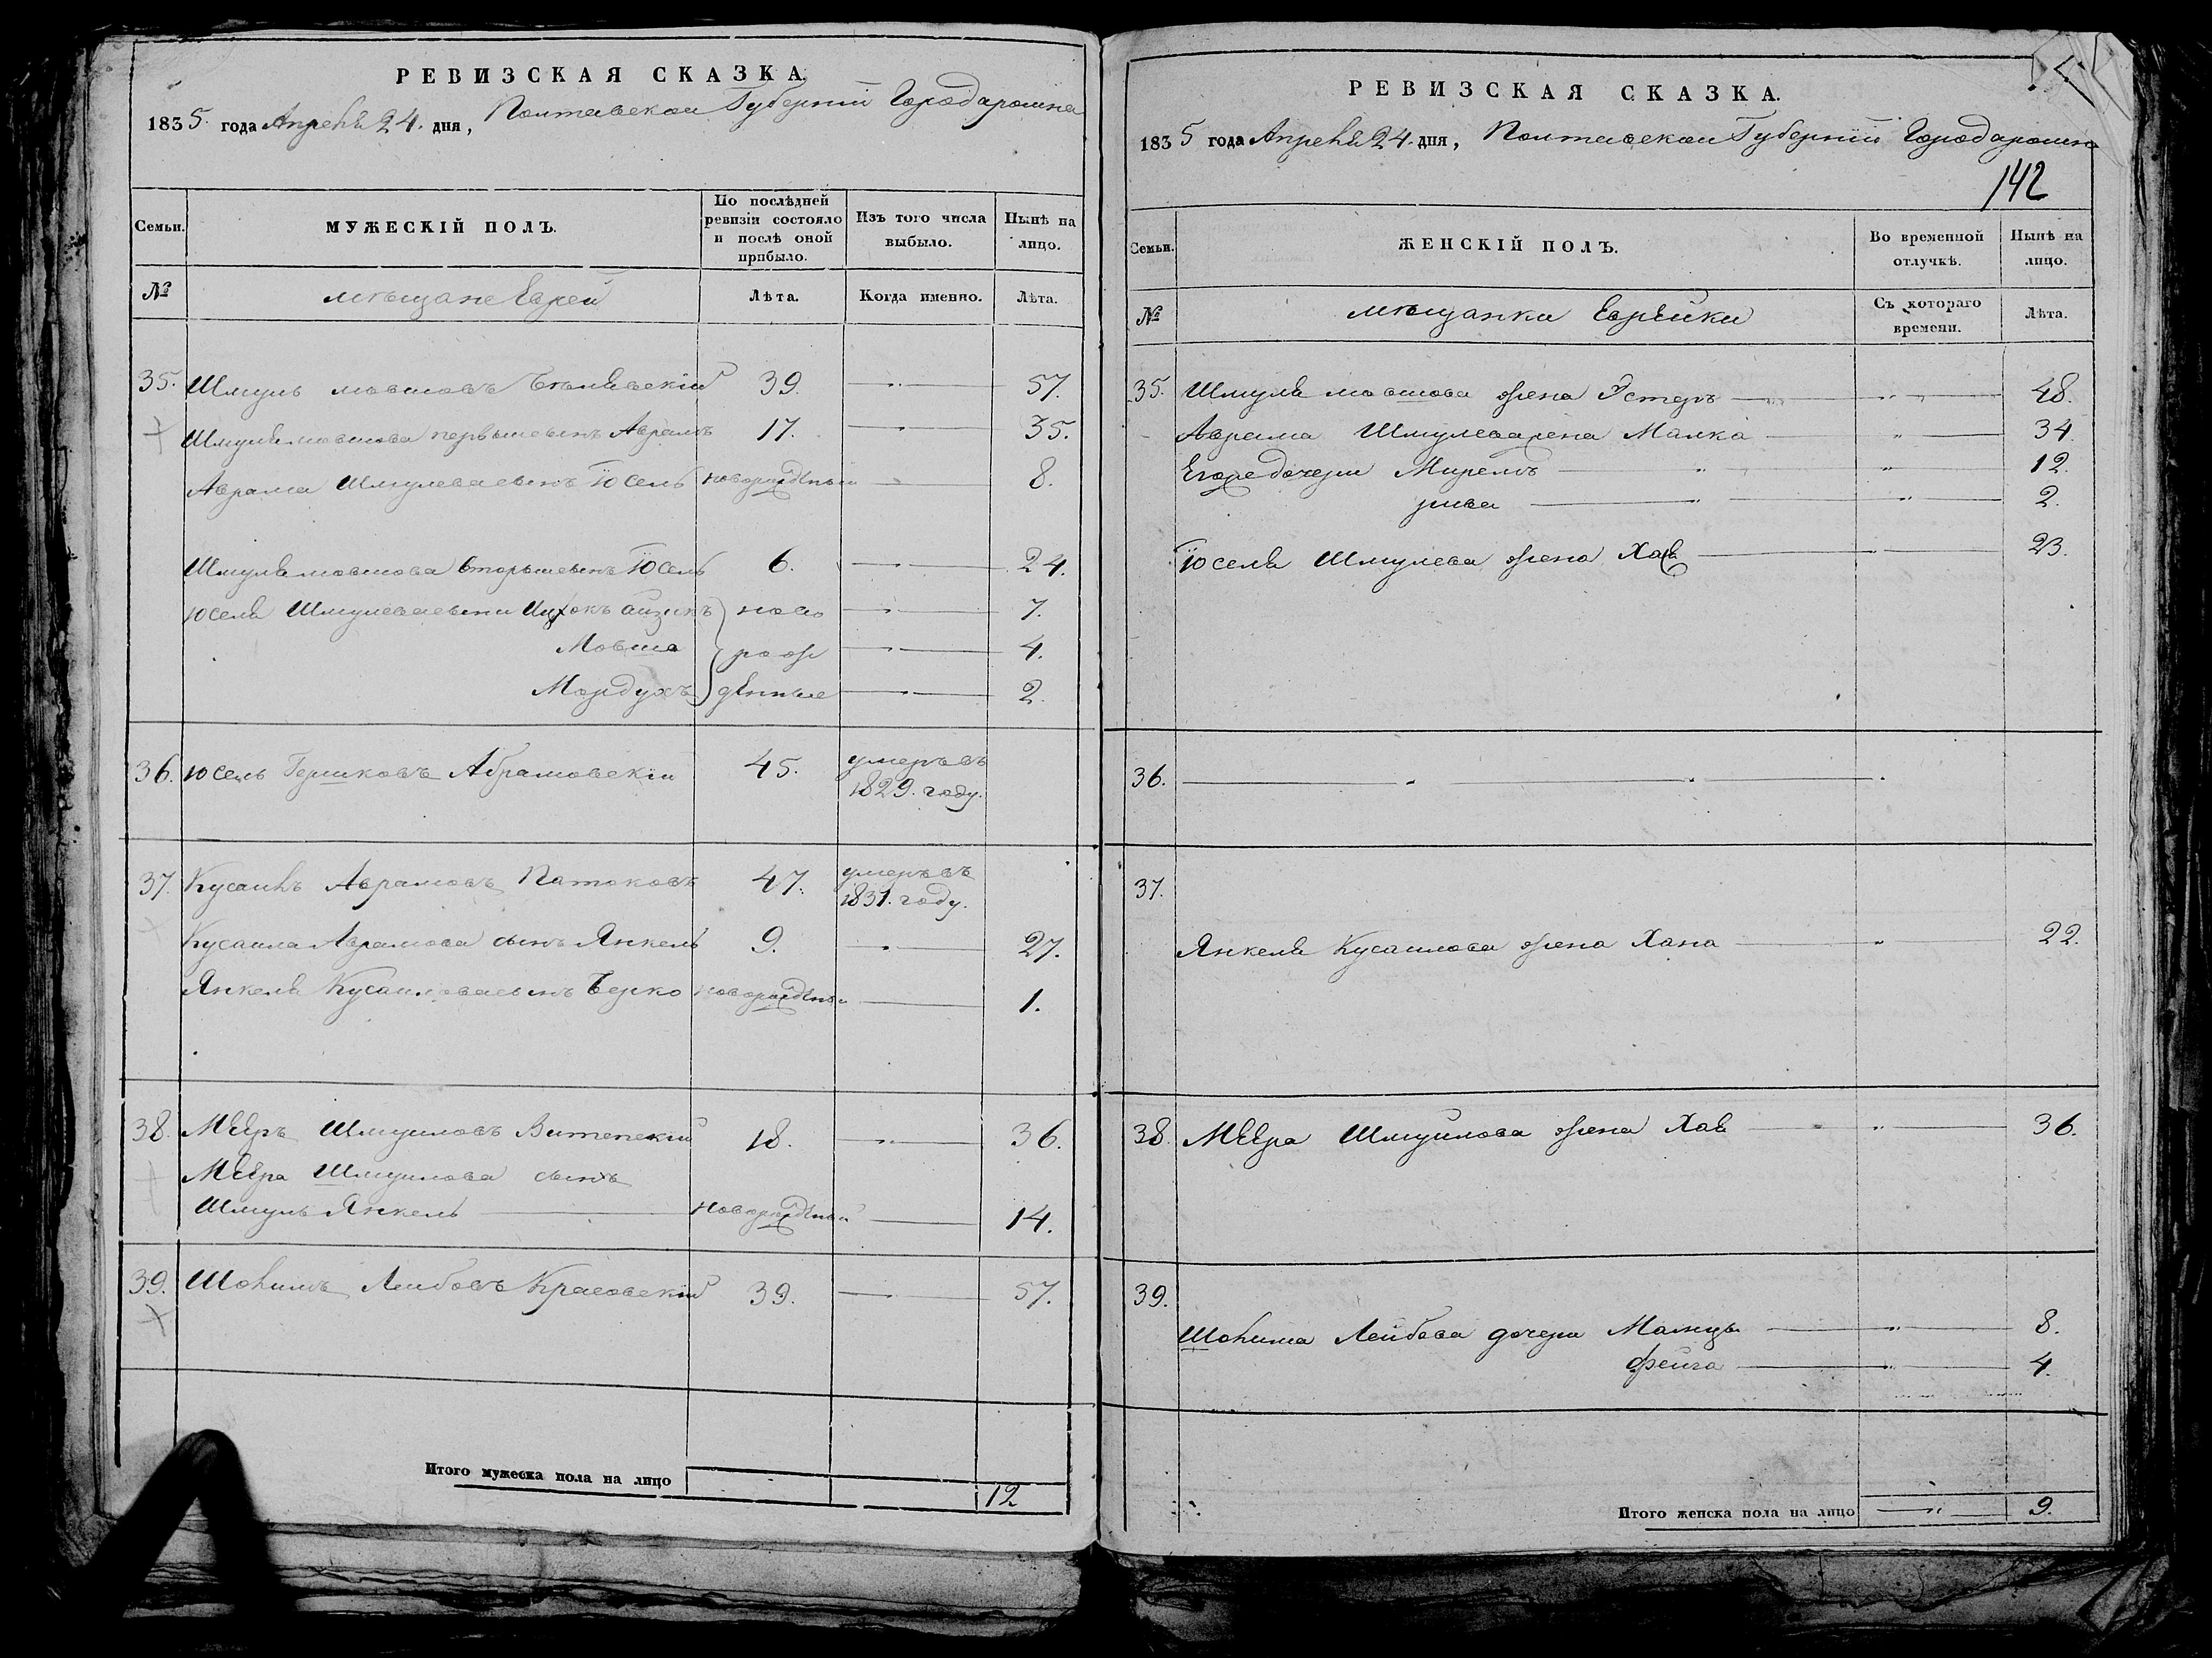 РЕВИЗСКАЯ СКАЗКА.
1835. года Апреля 24. дня, Полтавской Губернїи Города
МУЖЕСКІЙ ПОЛЪ.
Семьи.
По послѣдней ревизіи состояло и послѣ оной прибыло.
Изъ того числа выбыло.
Нынѣ на лицо.
№ мѣщане Евреи Лѣта. Когда именно. Лѣта.
35. Шмуль мовшовъ 39. 57.
Шмуля мовшова первый сынъ Аврамъ 17. 35.
Аврама Шмулева сынъ Іосель новорожденый 8.
Шмуля мовшова вторый сынъ Іосель 6. 24.
Іоселя Шмулева сыни Ицхокъ айзикъ ново 7.
Мовша рож 4.
Мордухъ денные 2.
36. Іосель Гершковъ Абрамовскїй 45. умеръ въ 1829. году.
37. Кусаилъ Аврамовъ Патоковъ 47. умеръ въ 1831. году.
Кусаила Аврамова сынъ Янкель 9. 27.
Янкеля Кусаилова сынъ Берко новорожденый 1.
38. Меерь Шмуиловъ Витепскїй 18. 36.
Меера Шмуилова сынъ
Шмуль Янкель новорожденый 14.
39. Шолимъ Лейбовъ Красовскїй 39. 57.
Итого мужеска пола на лицо 12
РЕВИЗСКАЯ СКАЗКА.
1835 года Апреля 24. дня, Полтавской Губернїи Города
142
Семьи.
ЖЕНСКІЙ ПОЛЪ.
Во временной отлучкѣ.
Нынѣ на лицо.
№ мѣщанки Еврейки Съ котораго времени. Лѣта.
35. Шмуля мовшова жена Эстеръ 48.
Аврама Шмулева жена Малка 34
Егоже дочери Мирелъ 12.
рива 2.
Іоселя Шмулева жена Хая 23.
36.
37.
Янкеля Кусаилова жена Хана 22.
38. Меера Шмуилова жена Хая 36.
39.
Шолима Лейбова дочери 8.
фейга 4.
Итого женска пола на лицо 9.